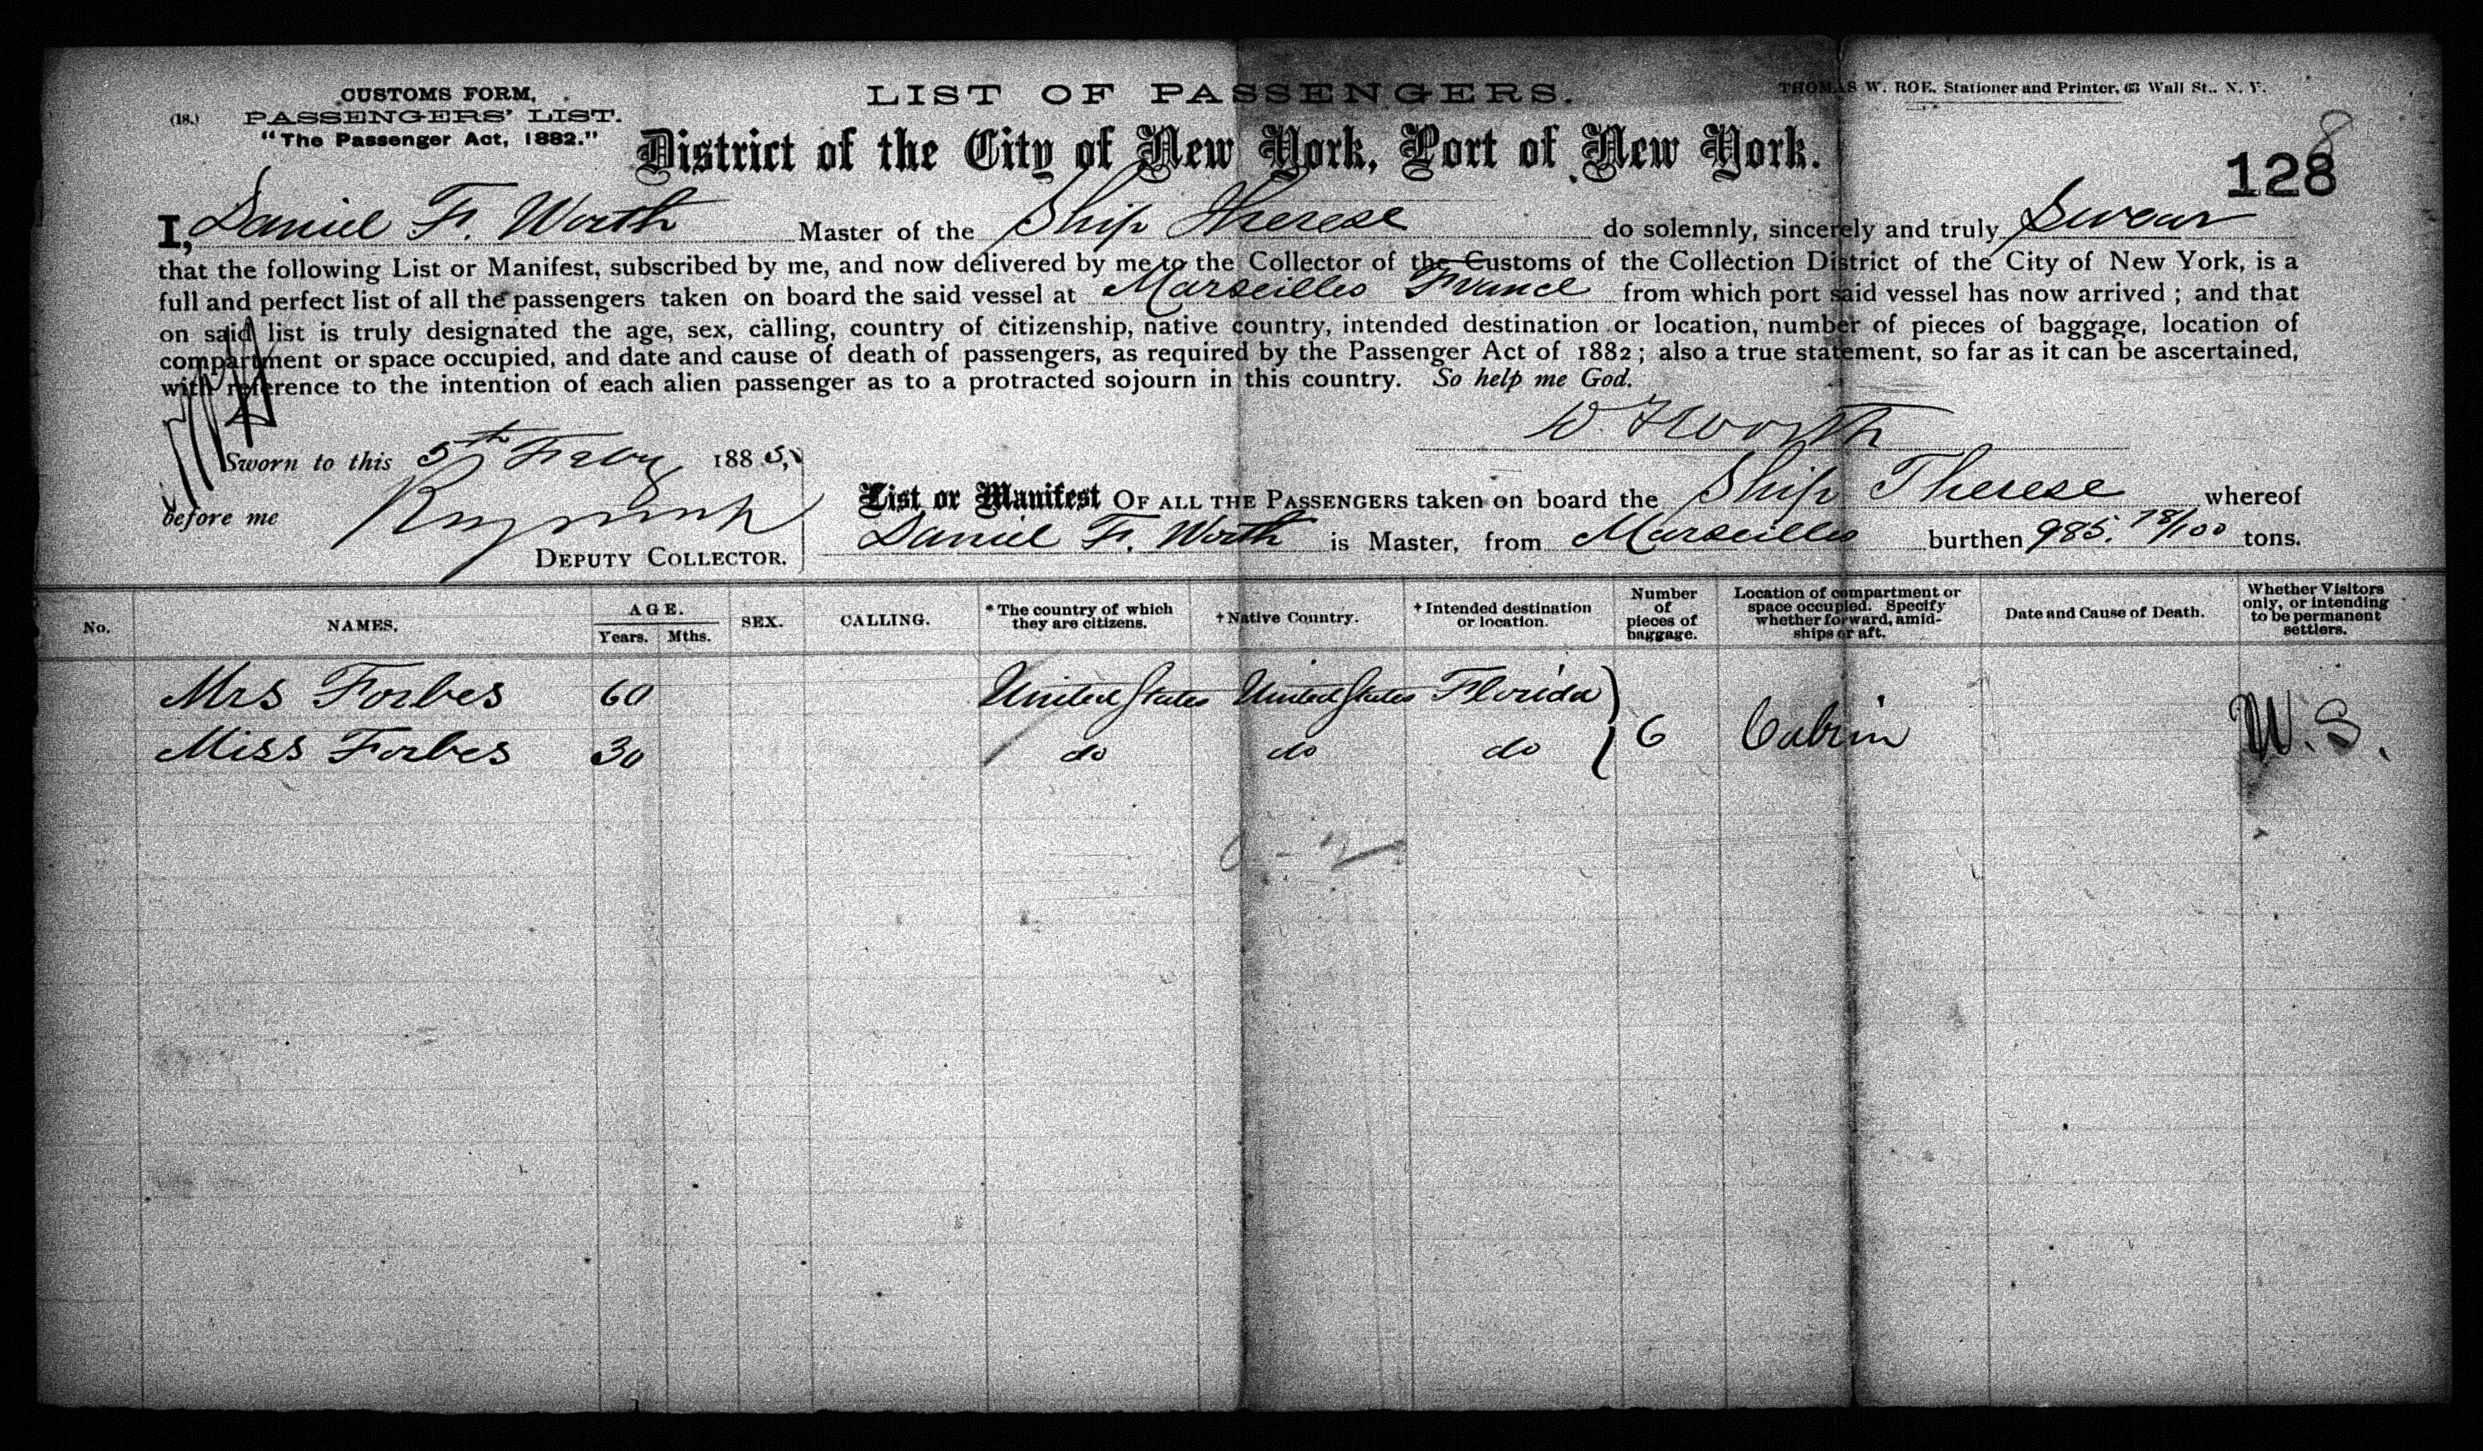 CUSTOMS FORM,
(18.) PASSENGERS' LIST.
"The Passenger Act, 1882."
LIST OF PASSENGERS.
THOMAS W. ROE, Stationer and Printer, 63 Wall St., N. Y.
District of the City of New York, Port of New York.
8
128
I, Daniel F. Worth Master of the Ship Therese do solemnly, sincerely and truly Swear
that the following List or Manifest, subscribed by me, and now delivered by me to the Collector of the Customs of the Collection District of the City of New York, is a
full and perfect list of all the passengers taken on board the said vessel at Marseilles France from which port said vessel has now arrived ; and that
on said list is truly designated the age, sex, calling, country of citizenship, native country, intended destination or location, number of pieces of baggage, location of
compartment or space occupied, and date and cause of death of passengers, as required by the Passenger Act of 1882 ; also a true statement, so far as it can be ascertained,
with reference to the intention of each alien passenger as to a protracted sojourn in this country. So help me God.
D. F Worth
Sworn to this 5th Feby 1885,
before me
DEPUTY COLLECTOR.
List or Manifest OF ALL THE PASSENGERS taken on board the Ship Therese whereof
Daniel F. Worth is Master, from Marseilles burthen 985. 78/100 tons.
No. NAMES. AGE. Years. Mths. SEX. CALLING. *The country of which they are citizens. †Native Country. †Intended destination or location. Number of pieces of baggage. Location of compartment or space occupied. Specify whether forward, amidships or aft. Date and Cause of Death. Whether Visitors only, or intending to be permanent settlers.
Mrs Forbes 60 United States United States Florida
Miss Forbes 30 do do do 6 Cabin W. S.